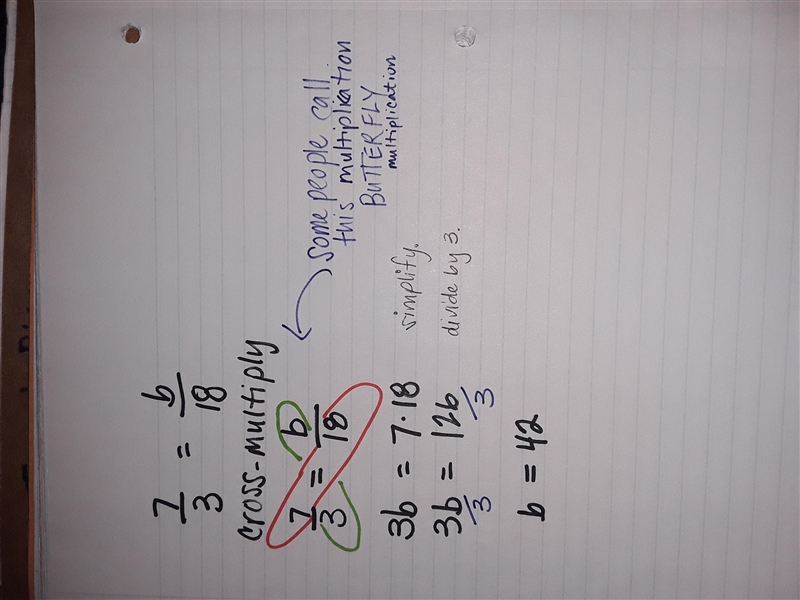 7/3 = b/18
cross-multiply
7/3 = b/18
some people call
this multiplication
BUTTERFLY
multiplication
3b = 7·18 simplify.
3b/3 = 126/3 divide by 3.
b = 42